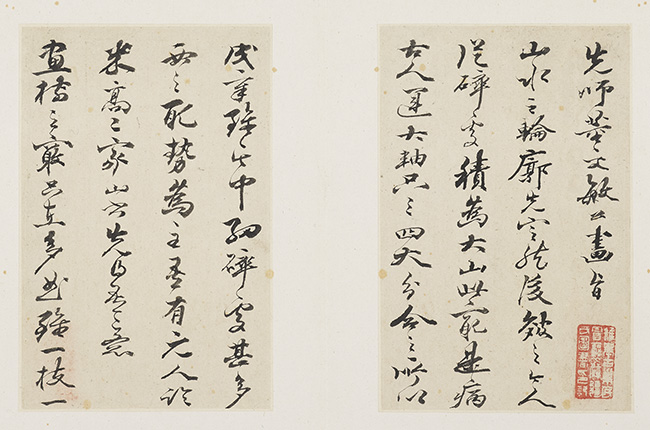 先師董文敏公畫旨
山水之輪廓先定然後皴之今人
從碎處積為大山此最是病
古人運大軸只三四大分合之所以
成章雖其中細碎處甚多
要之取勢為主吾有元人論
米高二家山書先得吾之意
畫樹之竅只在多曲雖一枝一